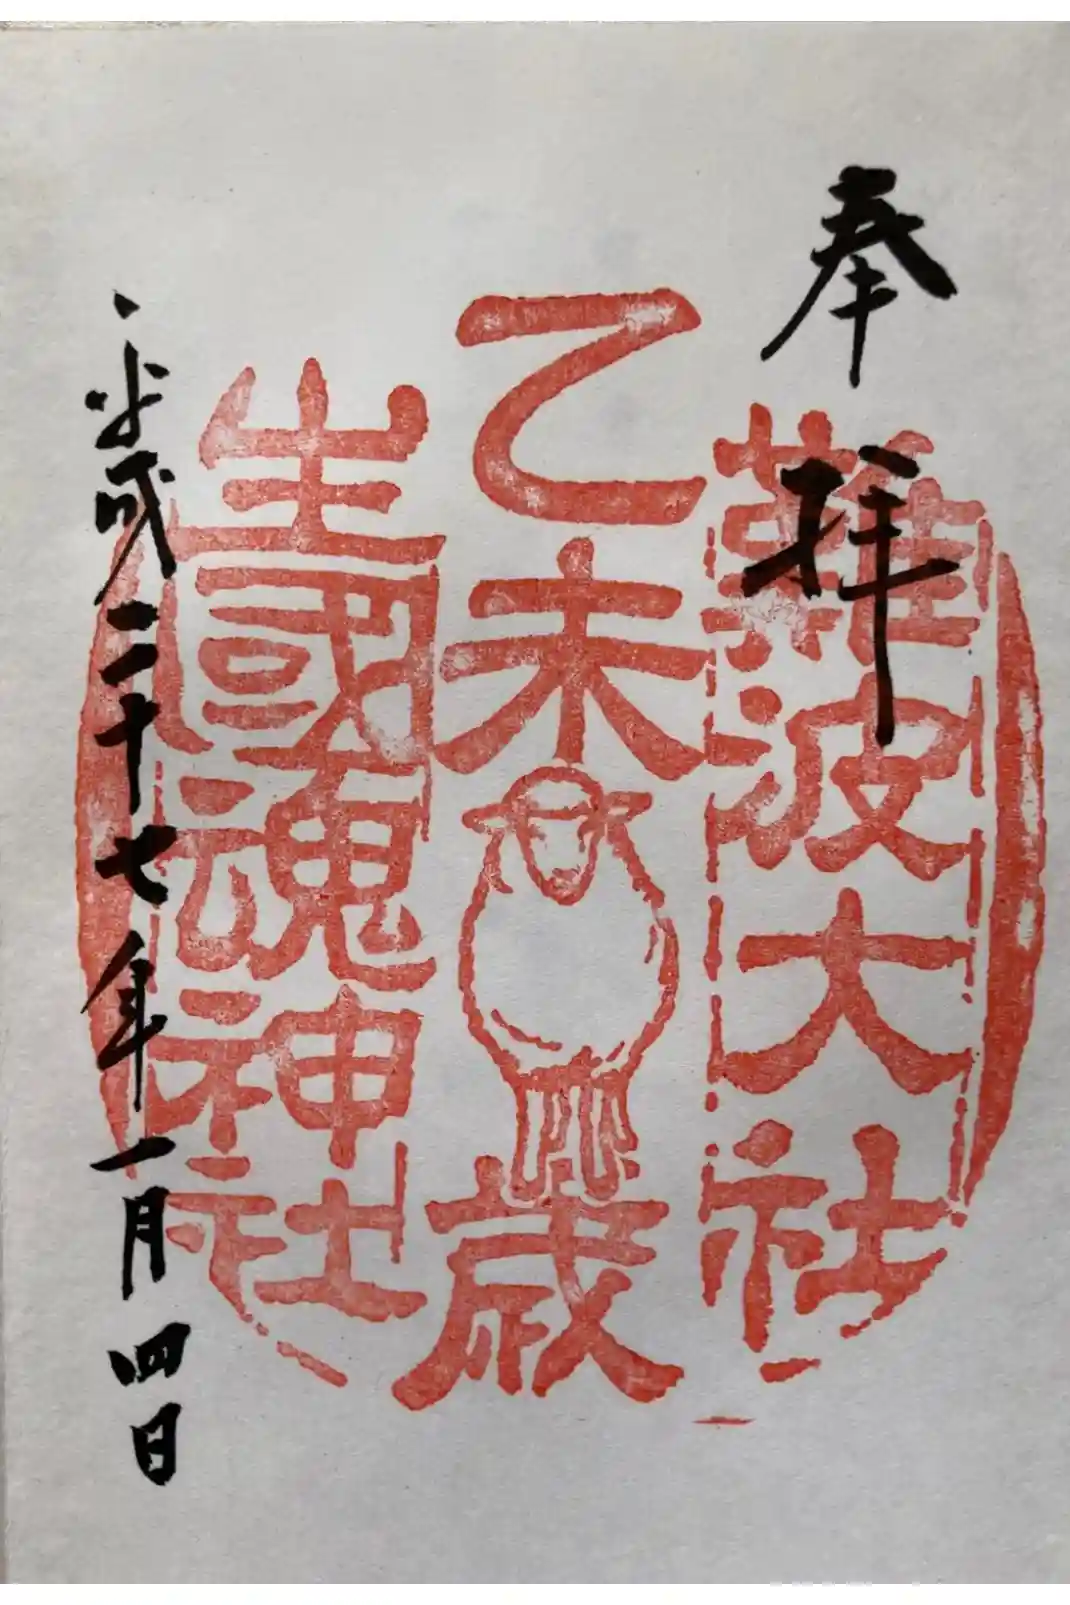 奉拝
難波大社
乙未歳
生國魂神社
平成二十七年一月四日